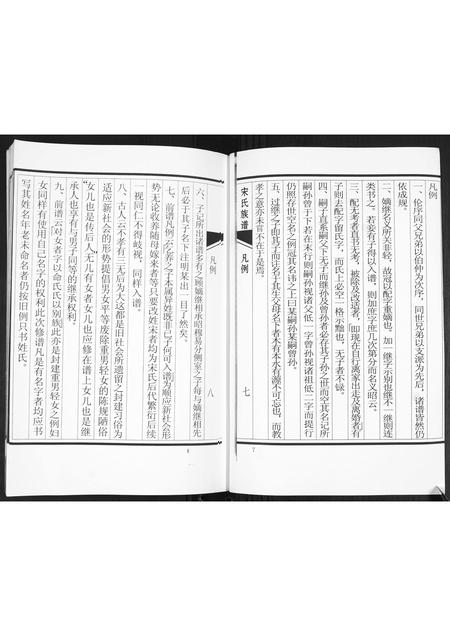 凡例
一、伦序同父兄弟以伯仲为次序，同世兄弟以支派为先后，诸谱皆然仍
依成规。
二、嫡继名义所关非轻，故冠以配字重嫡也，加一继字示别也继不一继则连
类书之。若妾有子得以入谱，则加庶字庶几次第分而名义昭云。
三、配无考者直书无考，被除及改适者，即现在自行离家出走及离婚者有
子则去配字留氏字，而氏上必空一格示黜也，无子者不録。
四、嗣子直系嗣父下无子而继孙及曾孙者必存其子孙之世而空其名记所
嗣孙曾于下若在本行则嗣孙视诸父低一字曾孙视诸祖低二字而提行
仍照存世空名之例冠其名讳之上曰某嗣孙某嗣曾孙。
五、过继之子由其子而注名于其生父母名下者木有本水有源不可忘也，而教
孝之意亦未言不在于是焉。
宋氏族谱
凡例
七
7
凡例
八
六、子记所出诸谱多有之顾嫡继相承昭穆易分侧室之子每与嫡继相先
后必于其子名下注明某出一目了然矣。
七、前谱凡例 云 之子本属异姓既非己子何可入谱为顺应新社会形
势无论收养随母嫁来者等只要改姓宋者均为宋氏后代繁衍后续
视同仁不得歧视，同样入谱。
八、古人云不孝有三无后为大这都是旧社会所遗留之封建习俗为
适应新社会的形势提倡男女平等废除重男轻女的陈规陋俗
“女儿也是传后人”无儿有女者女儿也应修在谱上女儿也是继
承人也享有与男子同等的继承权利。
九、前谱云对女者字以命氏氏以别族此亦是封建重男轻女之例妇
女同样有使用自己名字的权利此次修谱凡是有名字者均应书
写其姓名年老未命名者仍按旧例只书姓氏。
8